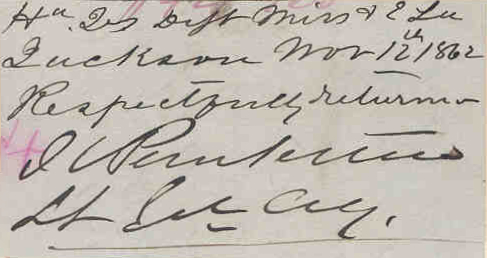 Hd Qrs Dept Miss & E La
Jackson Nov 12th 1862
Respectfully return
J C Pemberton
Lt Gen Cdg.